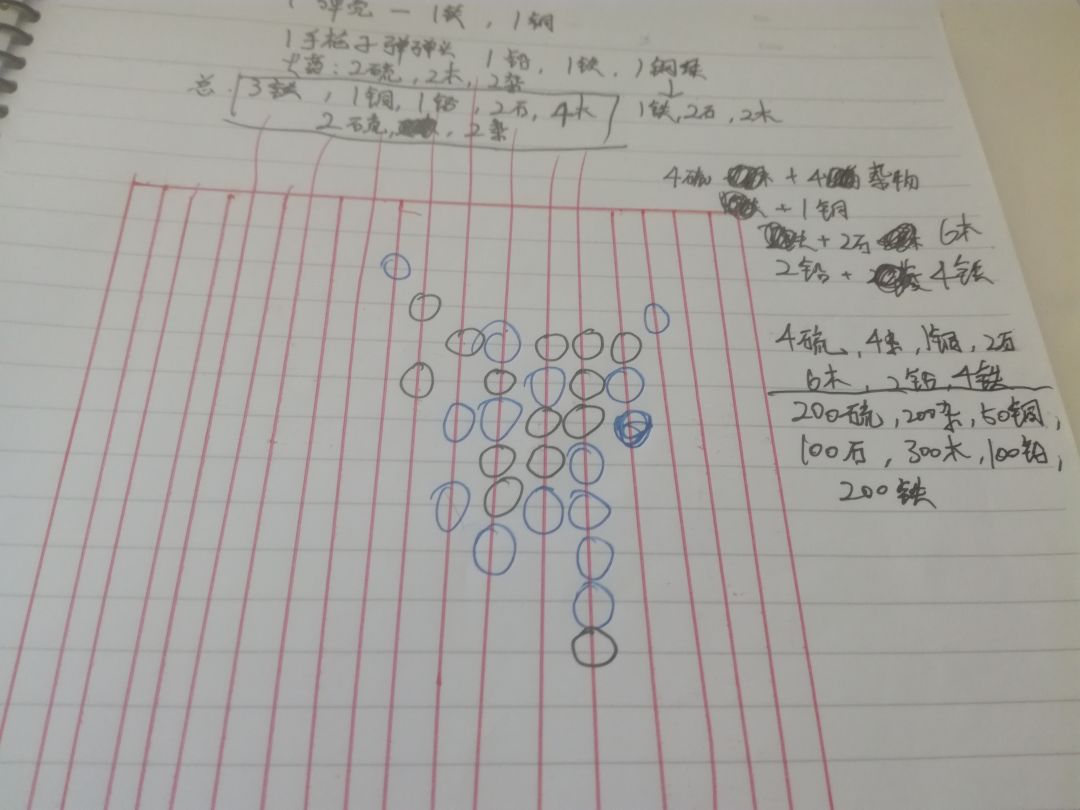 1弹壳 — 1铁，1铜
1手枪子弹弹头 1铅，1铁，1铜
火药：2硫，2木，2杂
总 3铁，1铜，1铅，2石，4木
1铁，2石，2木
2石 2杂
4硫 + 4 杂物
+ 1铜
+ 2石 6木
2铅 + 4铁
4硫，4杂，1铜，2石
6木，2铅，4铁
200硫，200杂，50铜，
100石，300木，100铅，
200铁